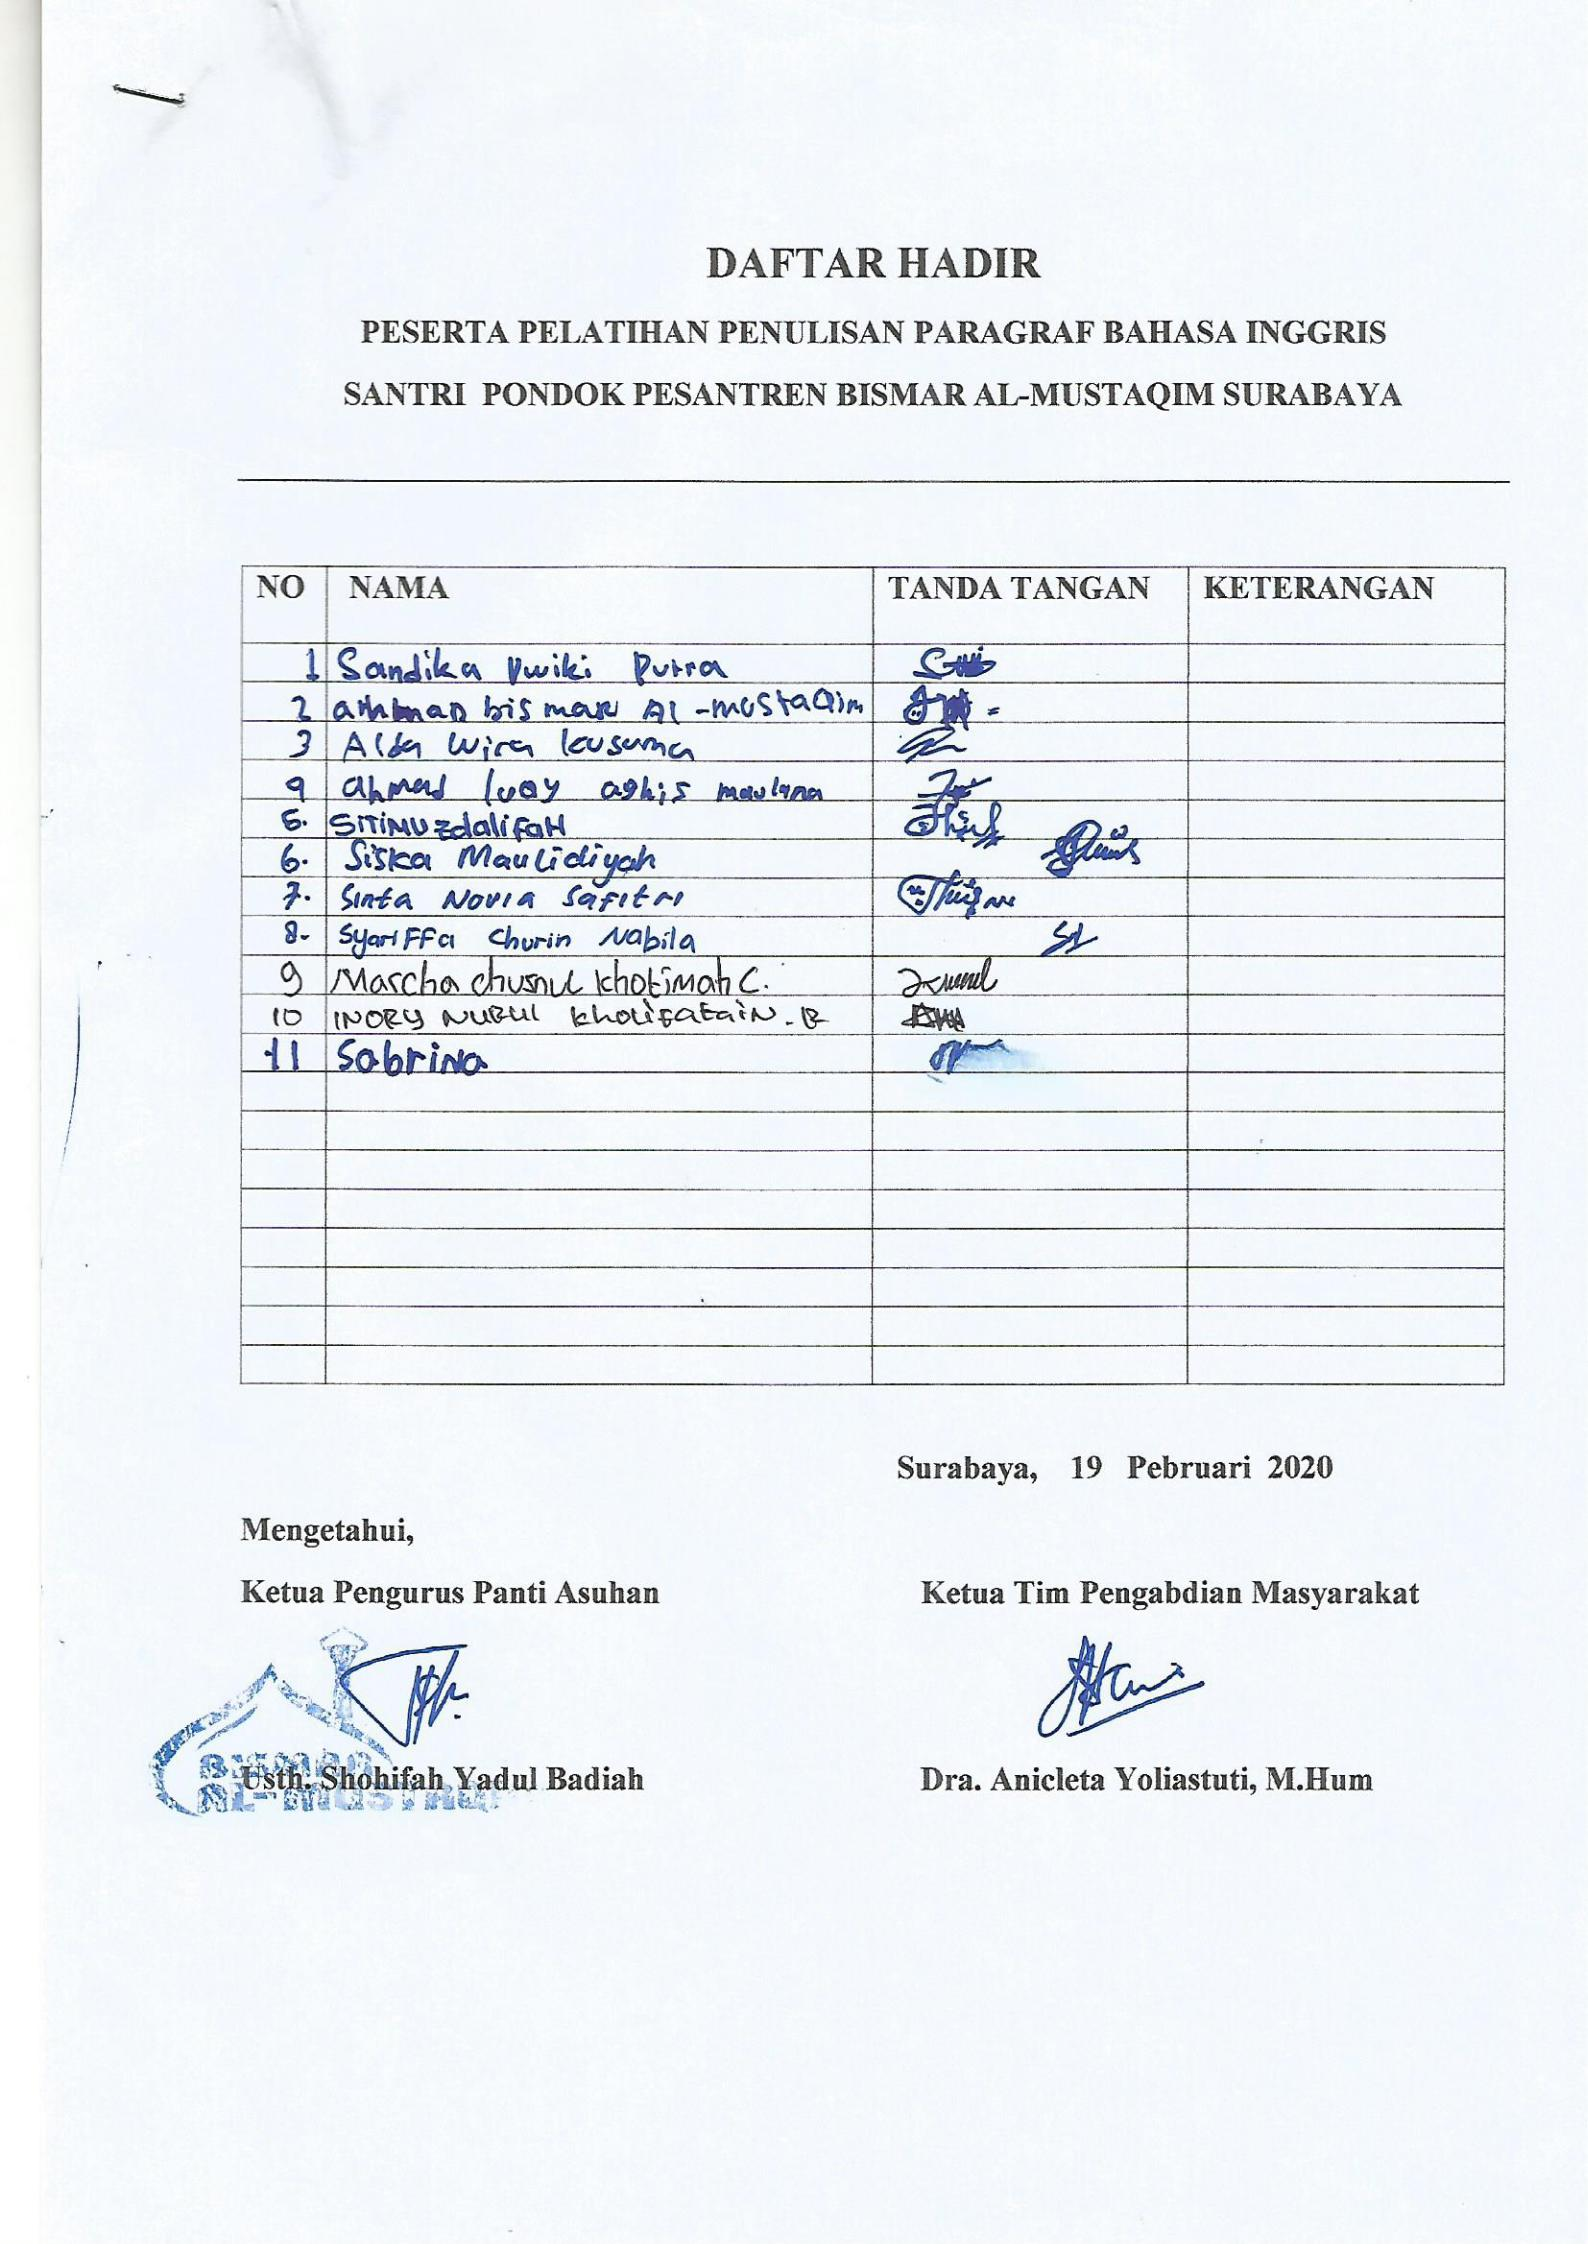 DAFTAR HADIR
PESERTA PELATIHAN PENULISAN PARAGRAF BAHASA INGGRIS
SANTRI PONDOK PESANTREN BISMAR AL-MUSTAQIM SURABAYA
NO NAMA TANDA TANGAN KETERANGAN
1 Sandika Dwiki Putra
2 bismar Al-mustaqim
3 Alda Wira kusuma
4 ahmad luay aghis maulana
5. SITIMUzdalifaH
6. Siska Maulidiyah
7. Sinta Novia Safitri
8. Syariffa Churin Nabila
9 Mascha chusnul khotimah C.
10 INORY NURUL kholifatain.R
11 Sabrina
Surabaya, 19 Pebruari 2020
Mengetahui,
Ketua Pengurus Panti Asuhan Ketua Tim Pengabdian Masyarakat
BISMAR
AL-MUSTAQI
Usth. Shohifah Yadul Badiah Dra. Anicleta Yoliastuti, M.Hum